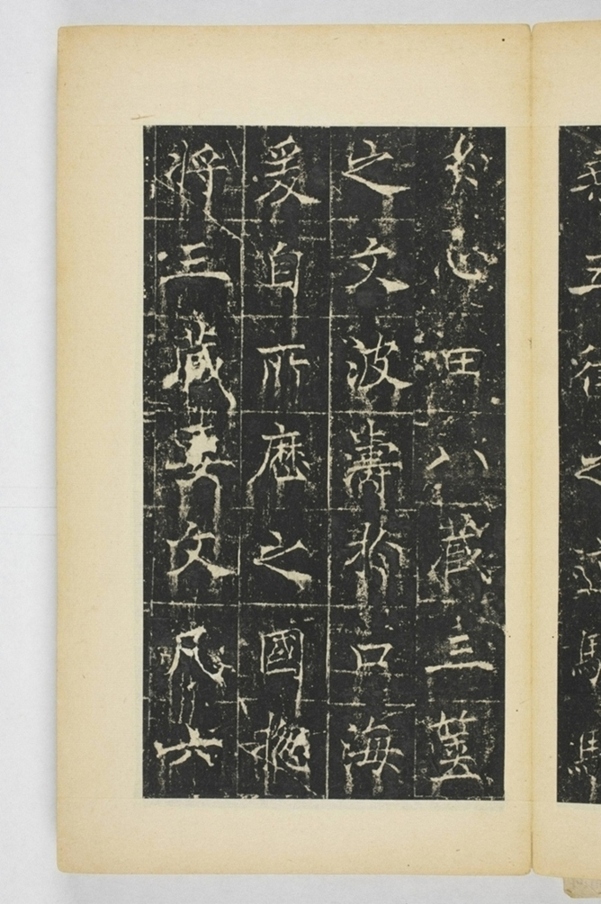 於心田八藏三篋
之文波濤於口海
爰自所歷之國摠
將三藏要文凡六